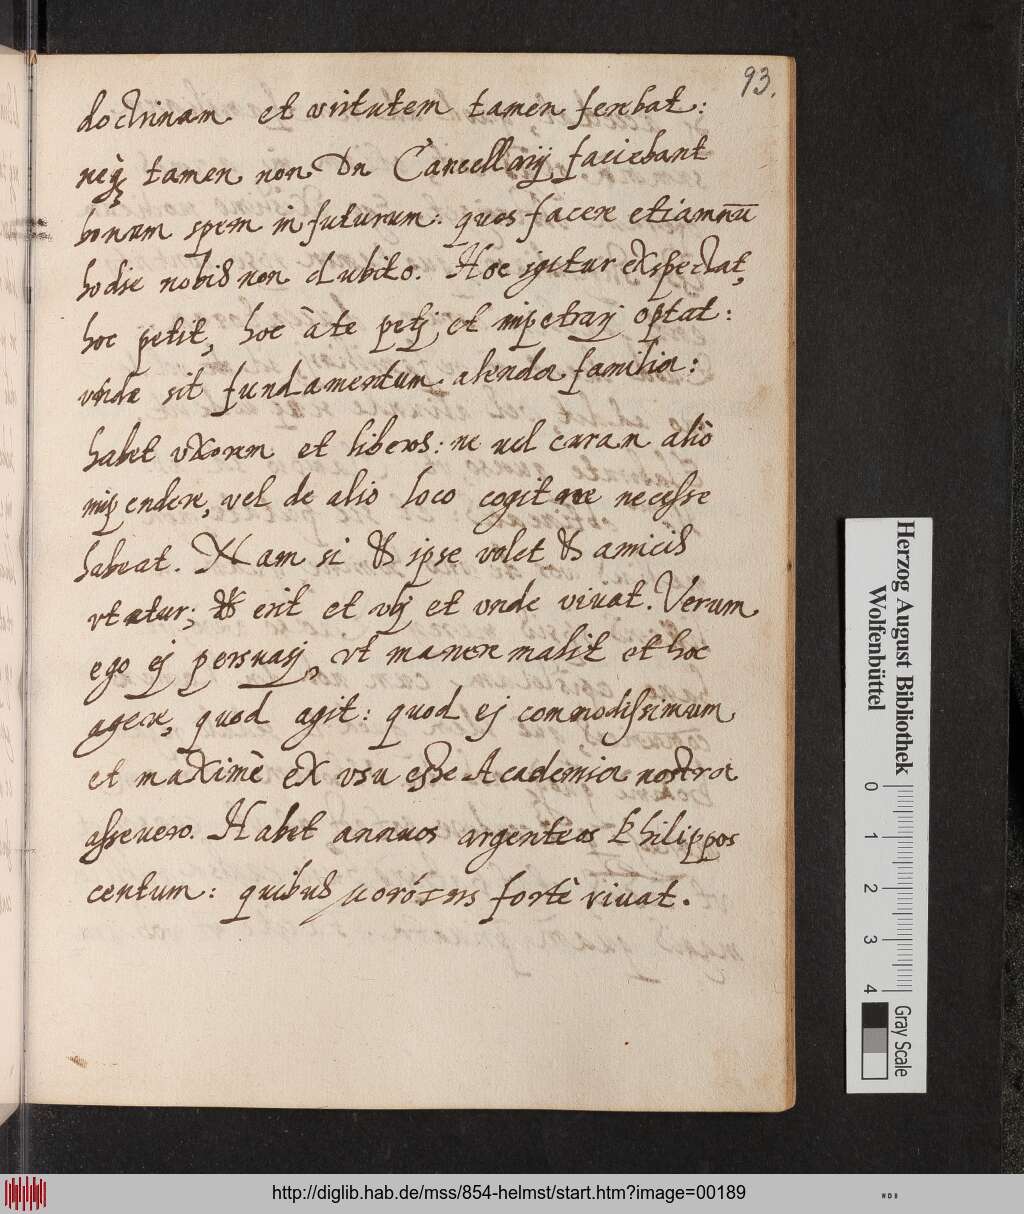 93.
doctrinam et virtutem tamen ferebat:
neq; tamen non Dn Cancellarij faciebant
bonam spem in futurum: quos facere etiamnū
hodie nobis non dubito. Hoc igitur exspectat,
hoc petit, hoc à te petj et impetrarj optat:
vnde sit fundamentum alendae familiae:
habet vxorem et liberos: ne vel curam aliò
impendere, vel de alio loco cogitare necesse
habeat. Nam si & ipse volet & amicis
vtatur; & erit et vbj et vnde viuat. Verum
ego ej persuasj, vt manere malit et hoc
agere, quod agit: quod ej commodissimum
et maximè ex vsu esse Academiae nostrae
asseuero. Habet annuos argenteos Philippos
centum: quibus fortè viuat.
Herzog August Bibliothek
Wolfenbüttel
0 1 2 3 4
Gray Scale
http://diglib.hab.de/mss/854-helmst/start.htm?image=00189